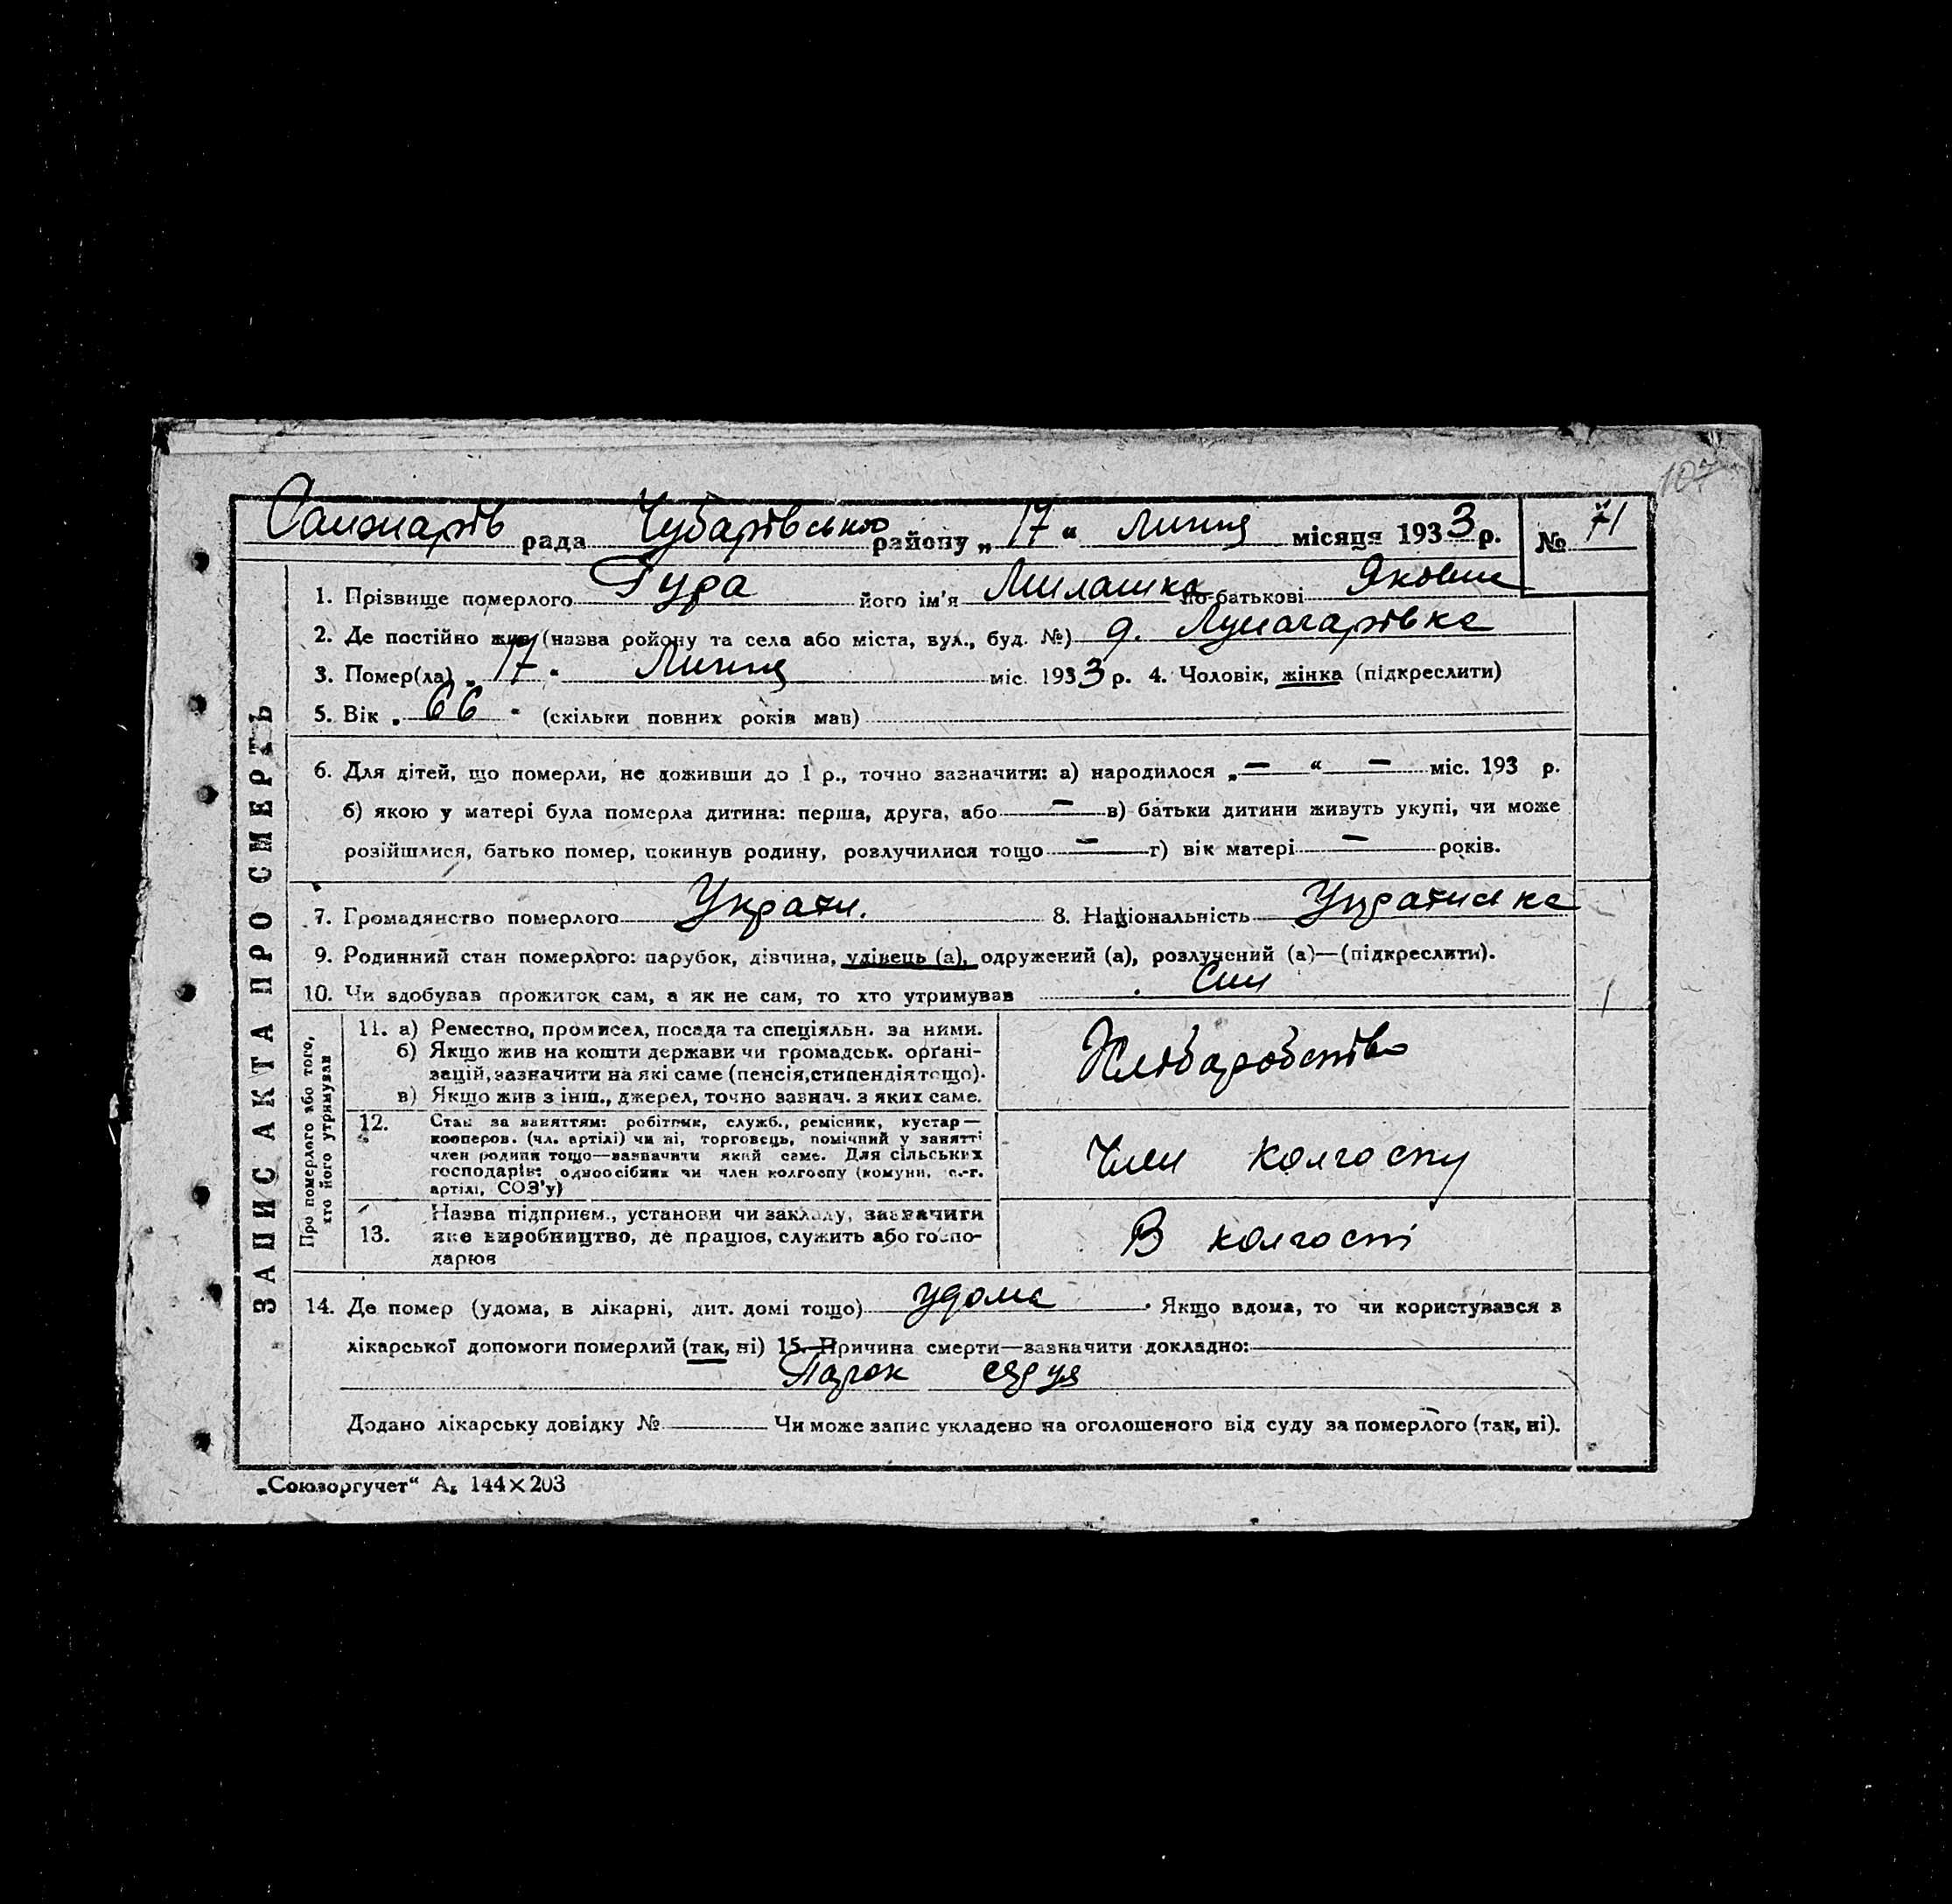 107
Санжарів рада Чубарівського району „17“ Липня місяця 1933 р. № 71
1. Прізвище померлого Гуда його ім'я Милашка по-батькові Яковл
2. Де постійно жив (назва ройону та села або міста, вул., буд. №) д. Луначарівка
3. Помер(ла) „17“ Липня міс. 1933 р. 4. Чоловік, жінка (підкреслити)
5. Вік „66“ (скільки повних років мав)
6. Для дітей, що померли, не доживши до 1 р., точно зазначити: а) народилося „—“ — міс. 193 р.
б) якою у матері була померла дитина: перша, друга, або — в) батьки дитини живуть укупі, чи може
розійшлися, батько помер, покинув родину, розлучилися тощо — г) вік матері — років.
7. Громадянство померлого Украти. 8. Національність Укратинка
9. Родинний стан померлого: парубок, дівчина, удівець (а), одружений (а), розлучений (а)—(підкреслити).
10. Чи здобував прожиток сам, а як не сам, то хто утримував Син
ЗАПИС АКТА ПРО СМЕРТЬ
Про померлого або того,
хто його утримував
11. а) Ремество, промисел, посада та спеціяльн. за ними.
б) Якщо жив на кошти держави чи громадськ. орґані-
зацій, зазначити на які саме (пенсія, стипендія тощо).
в) Якщо жив з інш., джерел, точно зазнач. з яких саме.
Хлібаробство
12. Стан за заняттям: робітник, служб., ремісник, кустар—
кооперов. (чл. артілі) чи ні, торговець, помічний у занятті
член родини тощо—зазначити який саме. Для сільських
господарів: одноосібник чи член колгоспу (комуни, с.-г.
артілі, СОЗ'у)
Член колгоспу
13. Назва підприєм., установи чи закладу, зазначити
яке виробництво, де працює, служить або госпо-
дарює
В колгоспі
14. Де помер (удома, в лікарні, дит. домі тощо) удома. Якщо вдома, то чи користувався з
лікарської допомоги померлий (так, ні) 15. Причина смерти—зазначити докладно:
Парок сярця
Додано лікарську довідку № Чи може запис укладено на оголошеного від суду за померлого (так, ні).
„Союзоргучет“ А₅ 144×203